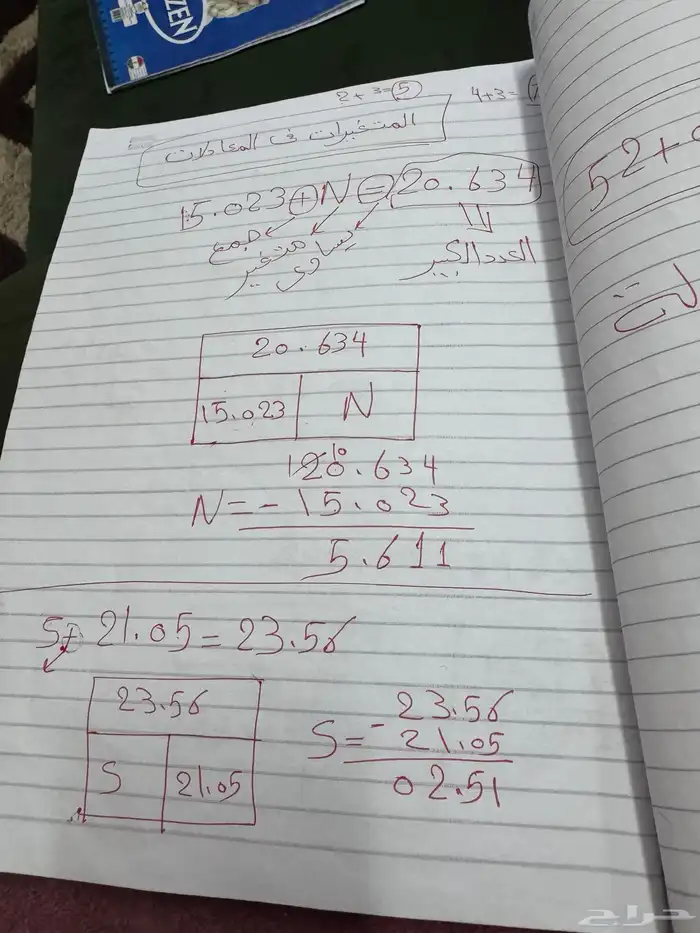 ZEN
2+3=5
4+3=
المتغيرات فى المعادلات
15.023+N=20.634
جمع متغير يساوى العدد الكبير
20.634
15.023 N
20.634
N= -15.023
5.611
S+ 21.05=23.56
23.56
S 21.05
23.56
S= - 21.05
02.51
52+
حراج